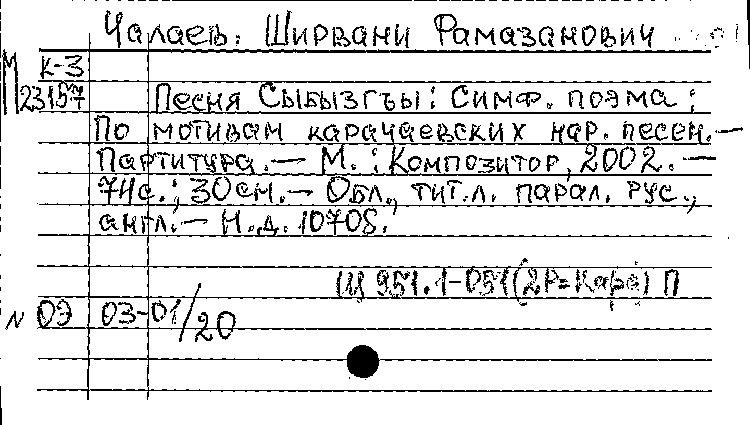 Чалаев, Ширвани Рамазанович
М К-3
2315
Песня Сыбызгъы: Симф. поэма:
По мотивам карачаевских нар. песен.—
Партитура.— М.: Композитор, 2002.—
74с.; 30см.— Обл., тит.л. парал. рус.,
англ.— Н.д. 10708.
Щ 951.1-051(2Р=Кара) П
N 09 03-01/20